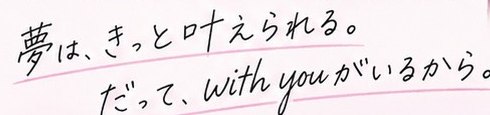 夢は、きっと叶えられる。
だって、with youがいるから。